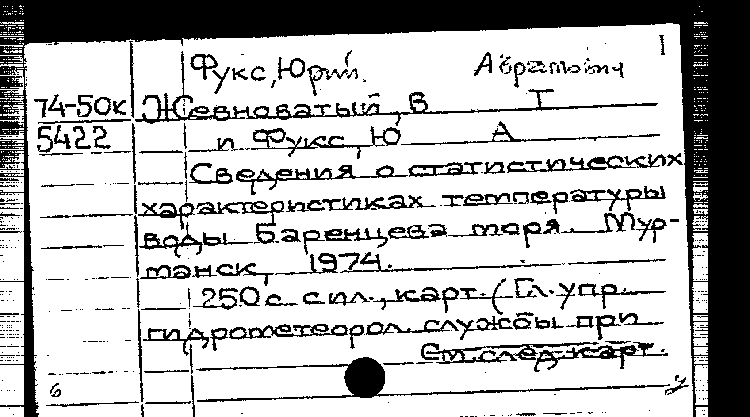 I
Фукс, Юрий Абрамович
74-50к Жевноватый, В Т
5422 и Фукс, Ю А
Сведения о статистических
характеристиках температуры
воды Баренцева моря. Мур-
манск, 1974.
250с с ил., карт. (Гл. упр
гидрометеорол. службы при
См. след. карт.
6